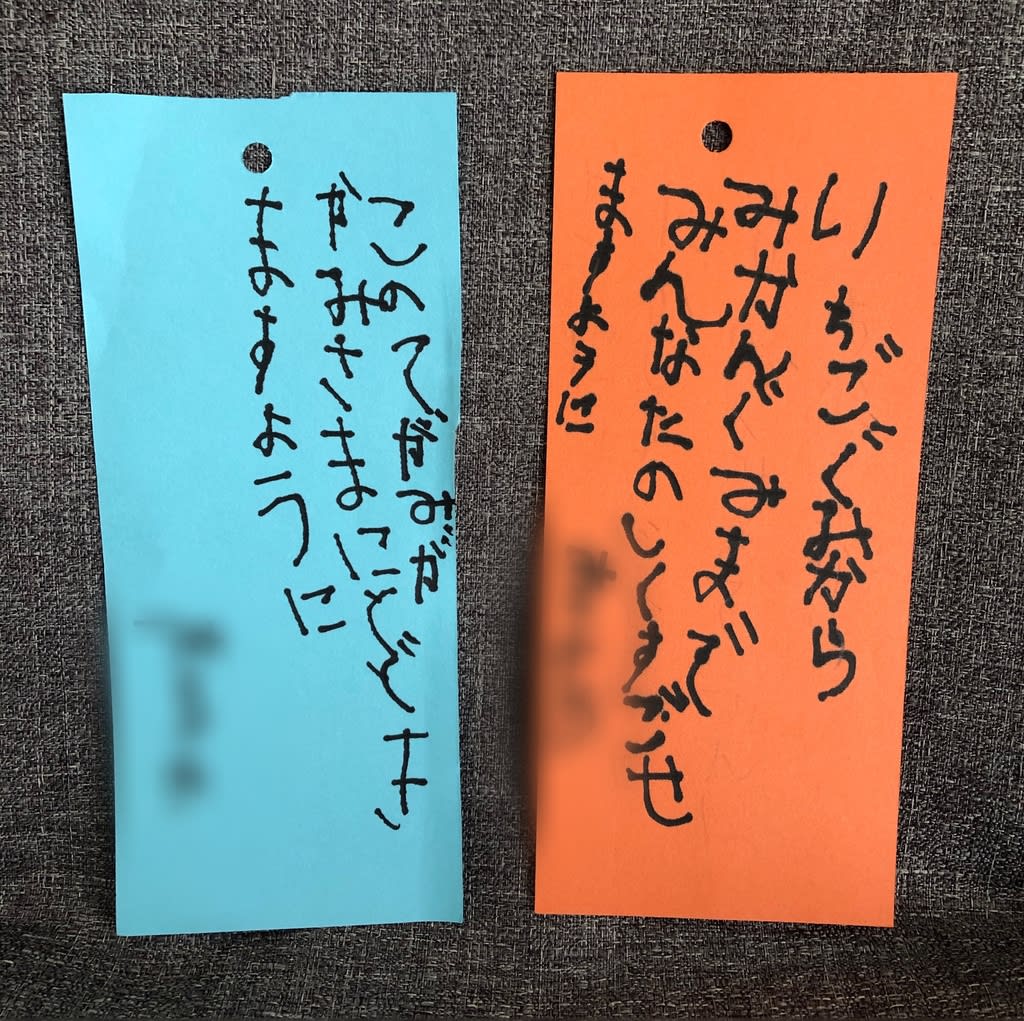 いちごぐみから
みかんぐみまで
みんなたのしくすごせ
ますように
このてがみが
かみさまにとどき
きますように